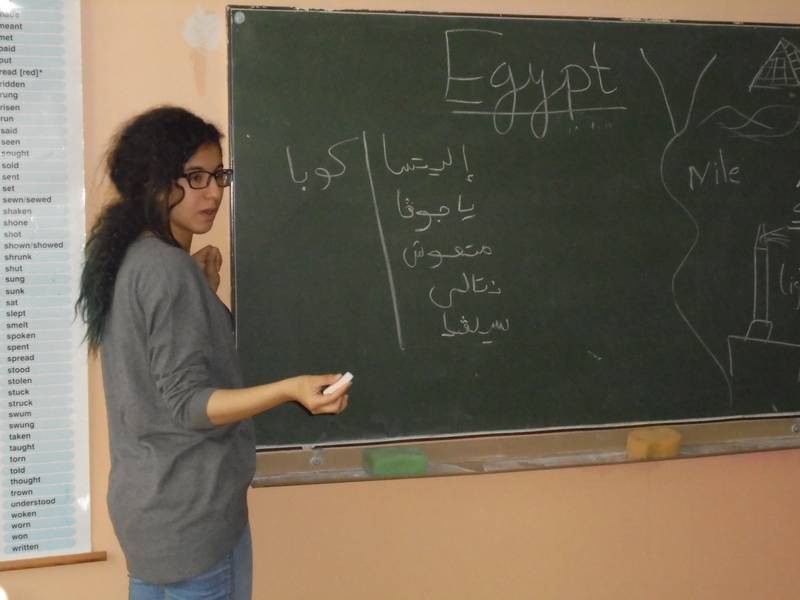 meant
met
paid
put
read [red]*
ridden
rung
risen
run
said
seen
sought
sold
sent
set
sewn/sewed
shaken
shone
shot
shown/showed
shrunk
shut
sung
sunk
sat
slept
smelt
spoken
spent
spread
stood
stolen
stuck
struck
swum
swung
taken
taught
torn
told
thought
trown
understood
woken
worn
won
written
Egypt
إليتسا
كوبا
ياجوڤا
متعوش
نتالي
سيلڤيا
Nile